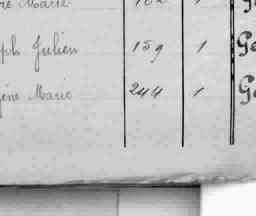 re Marie 162 1 G
ph Julien 159 1 Ge
gène Marie 244 1 Ge